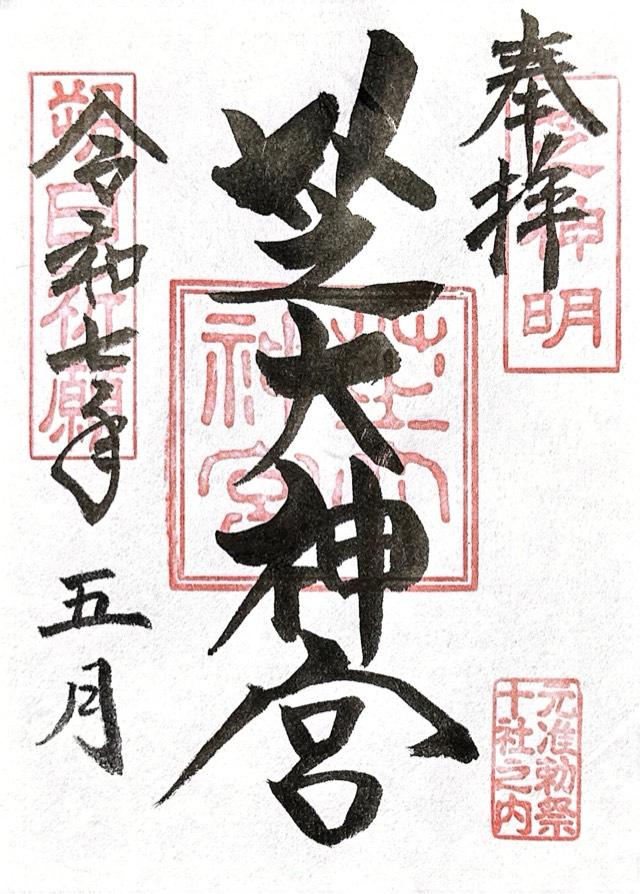 奉拝
芝神明
芝大神宮
芝大神宮
元准勅祭
十社之内
朔日祈願
令和七年
五月